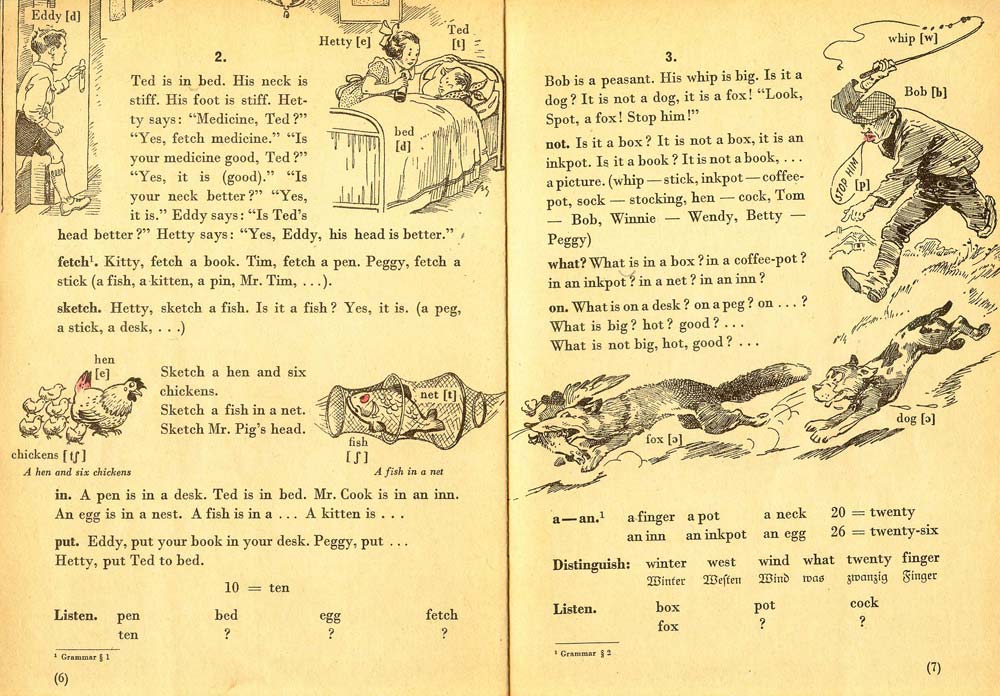 Eddy [d]
Hetty [e]
Ted
[t]
2.
Ted is in bed. His neck is
stiff. His foot is stiff. Het-
ty says: “Medicine, Ted?”
“Yes, fetch medicine.” “Is
your medicine good, Ted?”
“Yes, it is (good).” “Is
your neck better?” “Yes,
it is.” Eddy says: “Is Ted’s
head better?” Hetty says: “Yes, Eddy, his head is better.”
bed
[d]
fetch¹. Kitty, fetch a book. Tim, fetch a pen. Peggy, fetch a
stick (a fish, a kitten, a pin, Mr. Tim, . . .).
sketch. Hetty, sketch a fish. Is it a fish? Yes, it is. (a peg,
a stick, a desk, . . .)
hen
[e]
chickens [tʃ]
A hen and six chickens
Sketch a hen and six
chickens.
Sketch a fish in a net.
Sketch Mr. Pig’s head.
net [t]
fish
[ʃ]
A fish in a net
in. A pen is in a desk. Ted is in bed. Mr. Cook is in an inn.
An egg is in a nest. A fish is in a . . . A kitten is . . .
put. Eddy, put your book in your desk. Peggy, put . . .
Hetty, put Ted to bed.
10 = ten
Listen. pen bed egg fetch
ten ? ? ?
¹ Grammar § 1
(6)
3.
Bob is a peasant. His whip is big. Is it a
dog? It is not a dog, it is a fox! “Look,
Spot, a fox! Stop him!”
not. Is it a box? It is not a box, it is an
inkpot. Is it a book? It is not a book, . . .
a picture. (whip — stick, inkpot — coffee-
pot, sock — stocking, hen — cock, Tom
— Bob, Winnie — Wendy, Betty —
Peggy)
what? What is in a box? in a coffee-pot?
in an inkpot? in a net? in an inn?
on. What is on a desk? on a peg? on . . . ?
What is big? hot? good? . . .
What is not big, hot, good? . . .
whip [w]
Bob [b]
STOP HIM
[p]
fox [ɔ]
dog [ɔ]
a—an.¹ a finger a pot a neck 20 = twenty
an inn an inkpot an egg 26 = twenty-six
Distinguish: winter west wind what twenty finger
Winter Westen Wind was zwanzig Finger
Listen. box pot cock
fox ? ?
¹ Grammar § 2
(7)